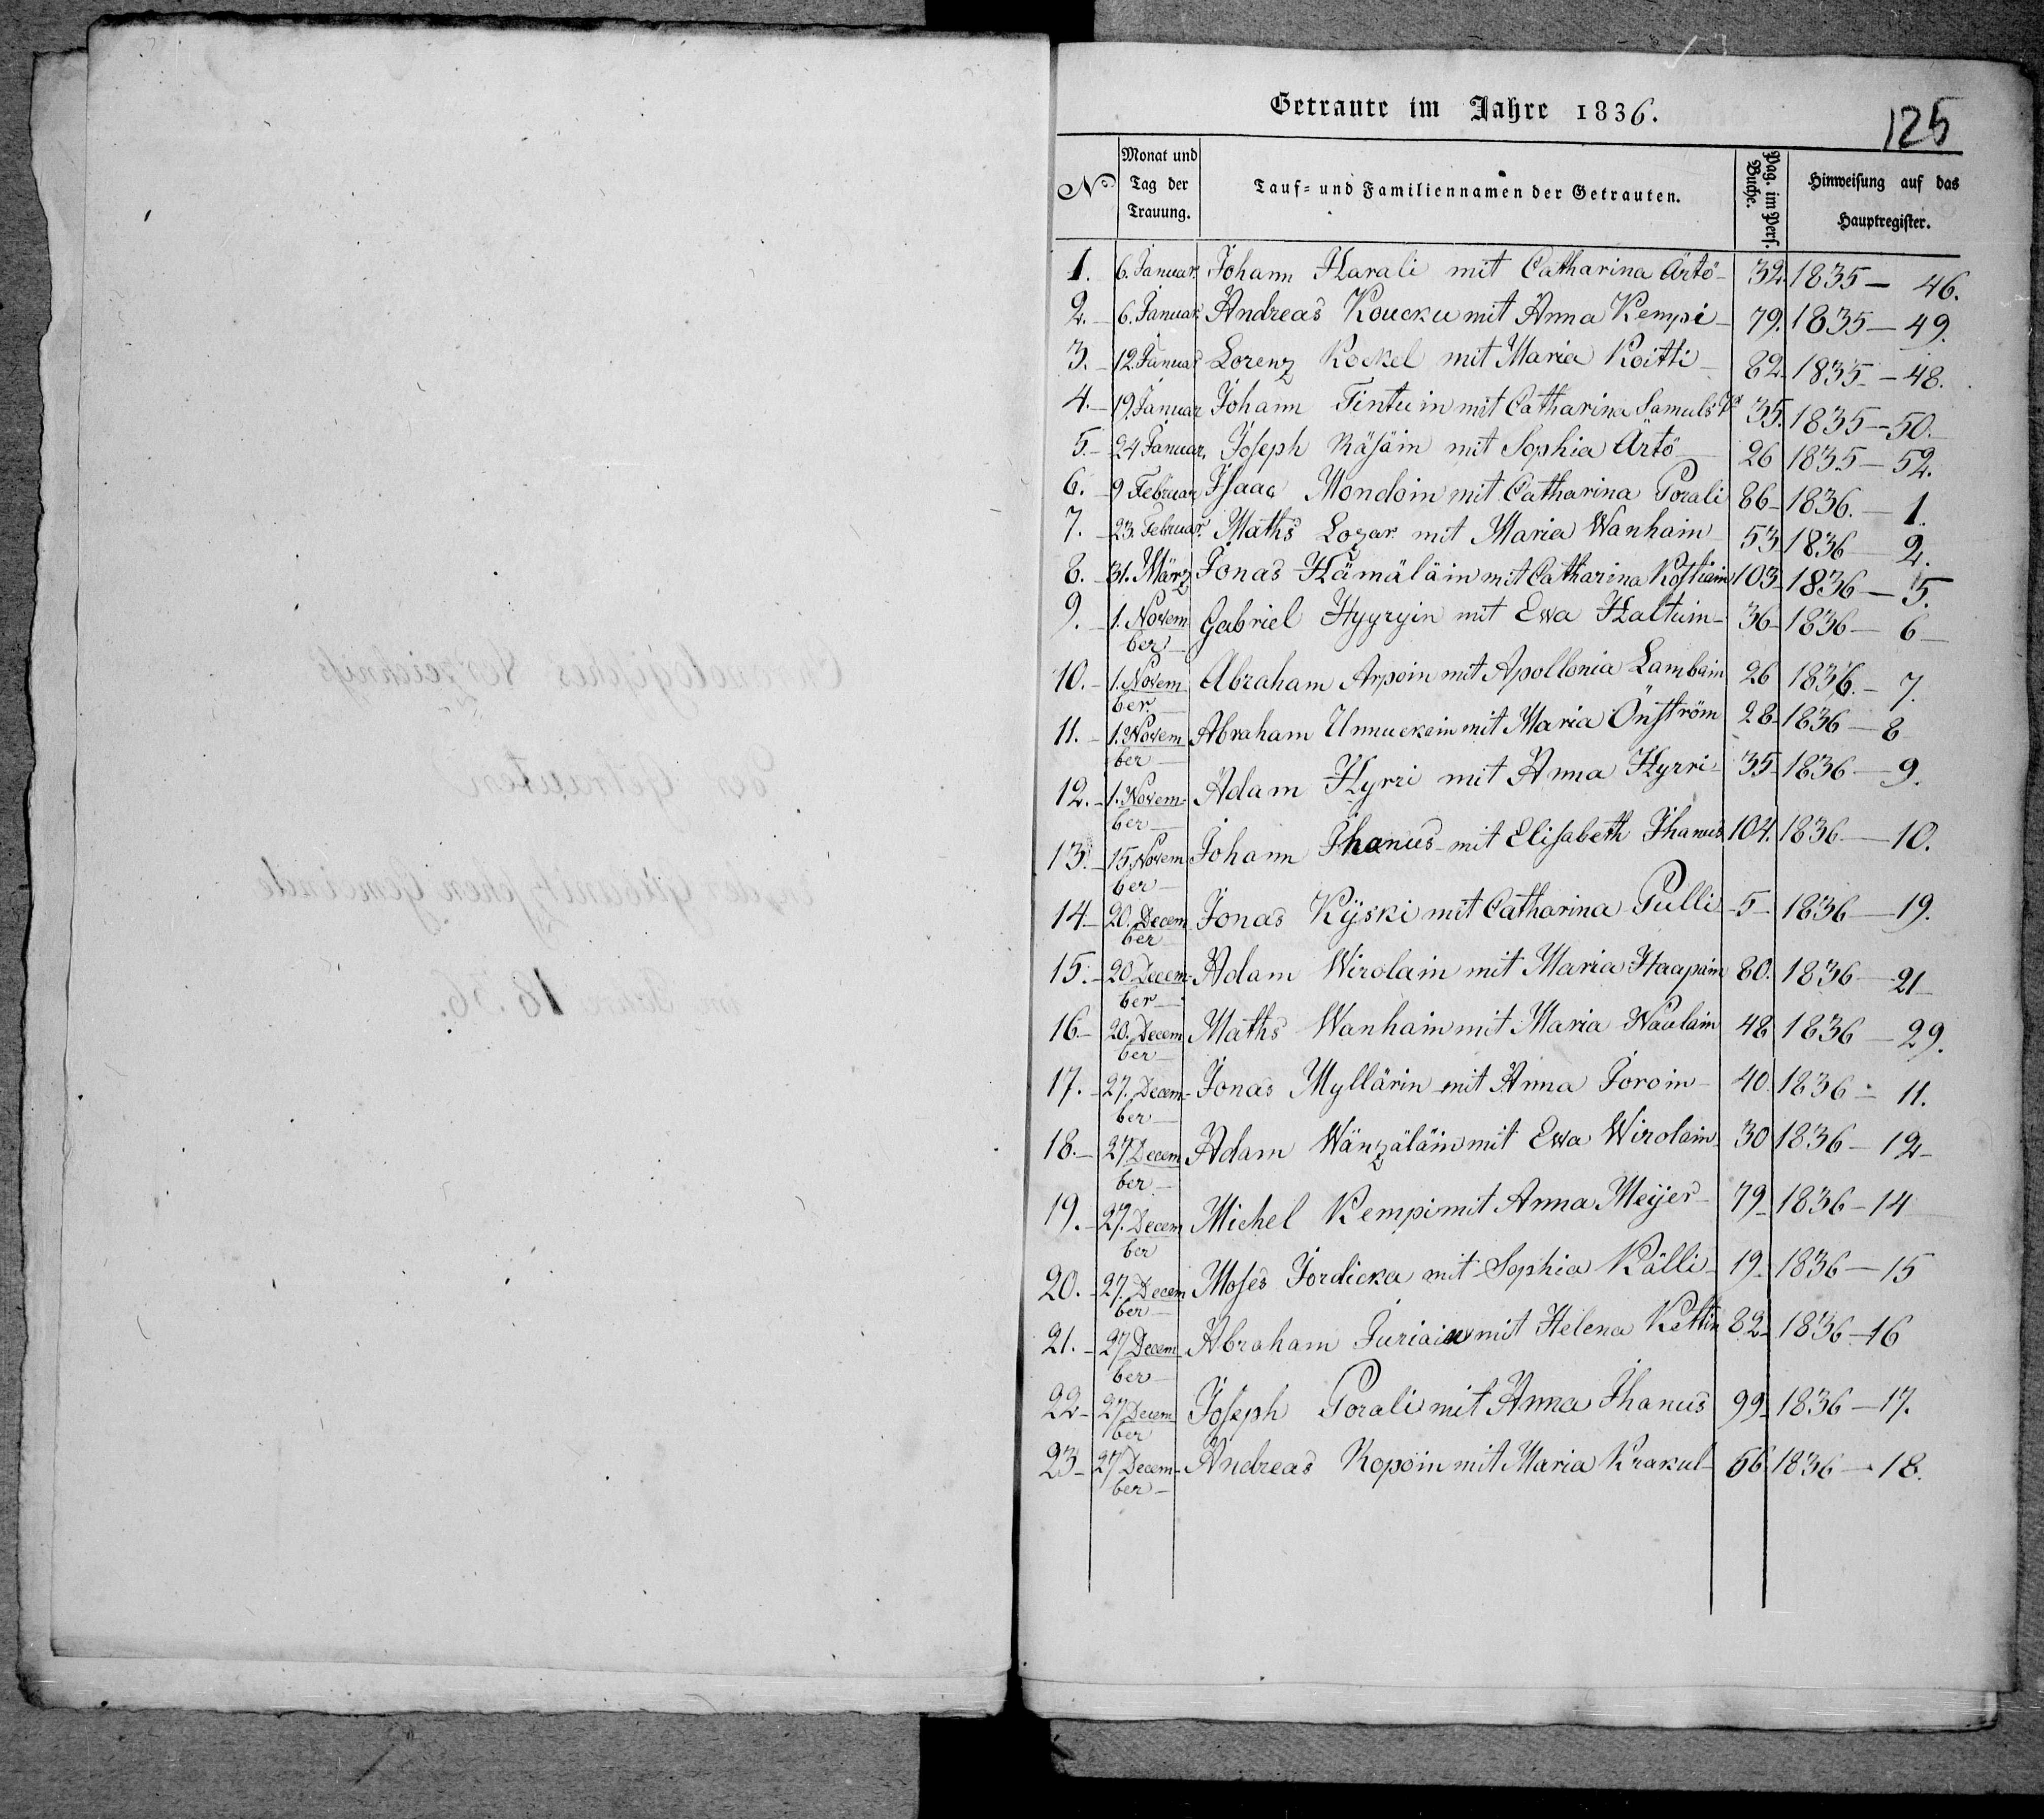 Getraute im Jahre 1836.
125
No Monat und Tag der Trauung. Tauf- und Familiennamen der Getrauten. Pag. im Pers. Buche. Hinweisung auf das Hauptregister.
1. 6. Januar. Johann Harali mit Catharina Ärtö - 32. 1835 - 46.
2. - 6. Januar. Andreas Koucku mit Anna Kempi - 79. 1835 - 49.
3. - 12. Januar Lorenz Kockel mit Maria Koitti - 82. 1835 - 48.
4. - 19. Januar Johann Tintuin mit Catharina Samuls 35. 1835 - 50.
5. - 24 Januar. Joseph Räsäin mit Sophia Ärtö - 26 1835 - 52.
6. - 9 Februar Isaac Mondoin mit Catharina Porali 86 - 1836. - 1.
7. - 23. Februar. Maths Lozar mit Maria Wanhain - 53 1836 - 2.
8. - 31. März Jonas Hämäläin mit Catharina Kostiain 103 - 1836 - 5.
9. - 1. November Gabriel Hyyryin mit Ewa Haltuin - 36 - 1836 - 6 -
10. - 1. November. Abraham Arpoin mit Apollonia Lambain 26 1836. - 7.
11. - 1. November Abraham Unnuckain mit Maria Önström 28 - 1836 - 8
12. - 1. November Adam Hyrri mit Anna Hyrri - 35 - 1836 - 9.
13. - 15. November Johann Ihanus mit Elisabeth Ihanus 104. 1836 - 10.
14 - 20. December Jonas Kÿski mit Catharina Pulli - 5 - 1836 - 19.
15. - 20 December Adam Wirolain mit Maria Haapain 80. 1836 - 21
16 - 20. December Maths Wanhain mit Maria Naulain 48 1836 - 29.
17. - 27. December Jonas Myllärin mit Anna Toroin - 40 1836 - 11.
18. - 27 December Adam Wänzäläin mit Ewa Wirolain - 30 1836 - 12 -
19. - 27. December Michel Kempi mit Anna Meijer - 79 - 1836 - 14
20. - 27. December Moses Jordicka mit Sophia Källi - 19. 1836 - 15
21. - 27 December Abraham Juriain mit Helena Kettin 82 - 1836 - 16
22 - 27 December Joseph Porali mit Anna Ihanus 99 - 1836 - 17.
23 - 27 December Andreas Ropoin mit Maria Krakul - 66 1836 - 18.